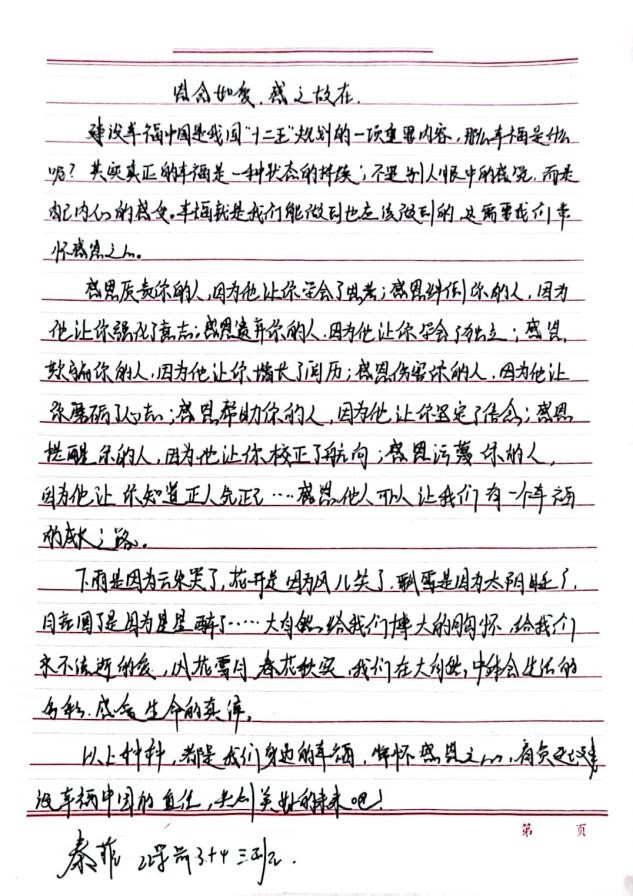 信念如爱,感之故在.
建设幸福中国是我国"十二五"规划的一项重要内容,那么幸福是什么
呢?其实真正的幸福是一种状态的持续;不是别人眼中的感觉,而是
自己内心的感受。幸福就是我们能做到也应该做到的,这需要我们常
怀感恩之心。
感恩斥责你的人,因为他让你学会了思考;感恩绊倒你的人,因为
他让你强化了意志;感恩遗弃你的人,因为他让你学会了独立;感恩
欺骗你的人,因为他让你增长了阅历;感恩伤害你的人,因为他让
你磨砺了心志;感恩帮助你的人,因为他让你坚定了信念;感恩
提醒你的人,因为他让你校正了航向;感恩污蔑你的人,
因为他让你知道正人先正己……感恩他人可以让我们有一个幸福
的成长之路。
下雨是因为云朵哭了,花开是因为风儿笑了,飘雪是因为太阳睡了,
月亮圆了是因为星星醉了……大自然给我们博大的胸怀,给我们
永不流逝的爱,风花雪月,春花秋实,我们在大自然中体会生活的
多彩,感念生命的真谛。
以上种种,都是我们身边的幸福,常怀感恩之心,肩负建
设幸福中国的重任,共创美好的未来吧!
秦菲 学前3+4 三班
第 页